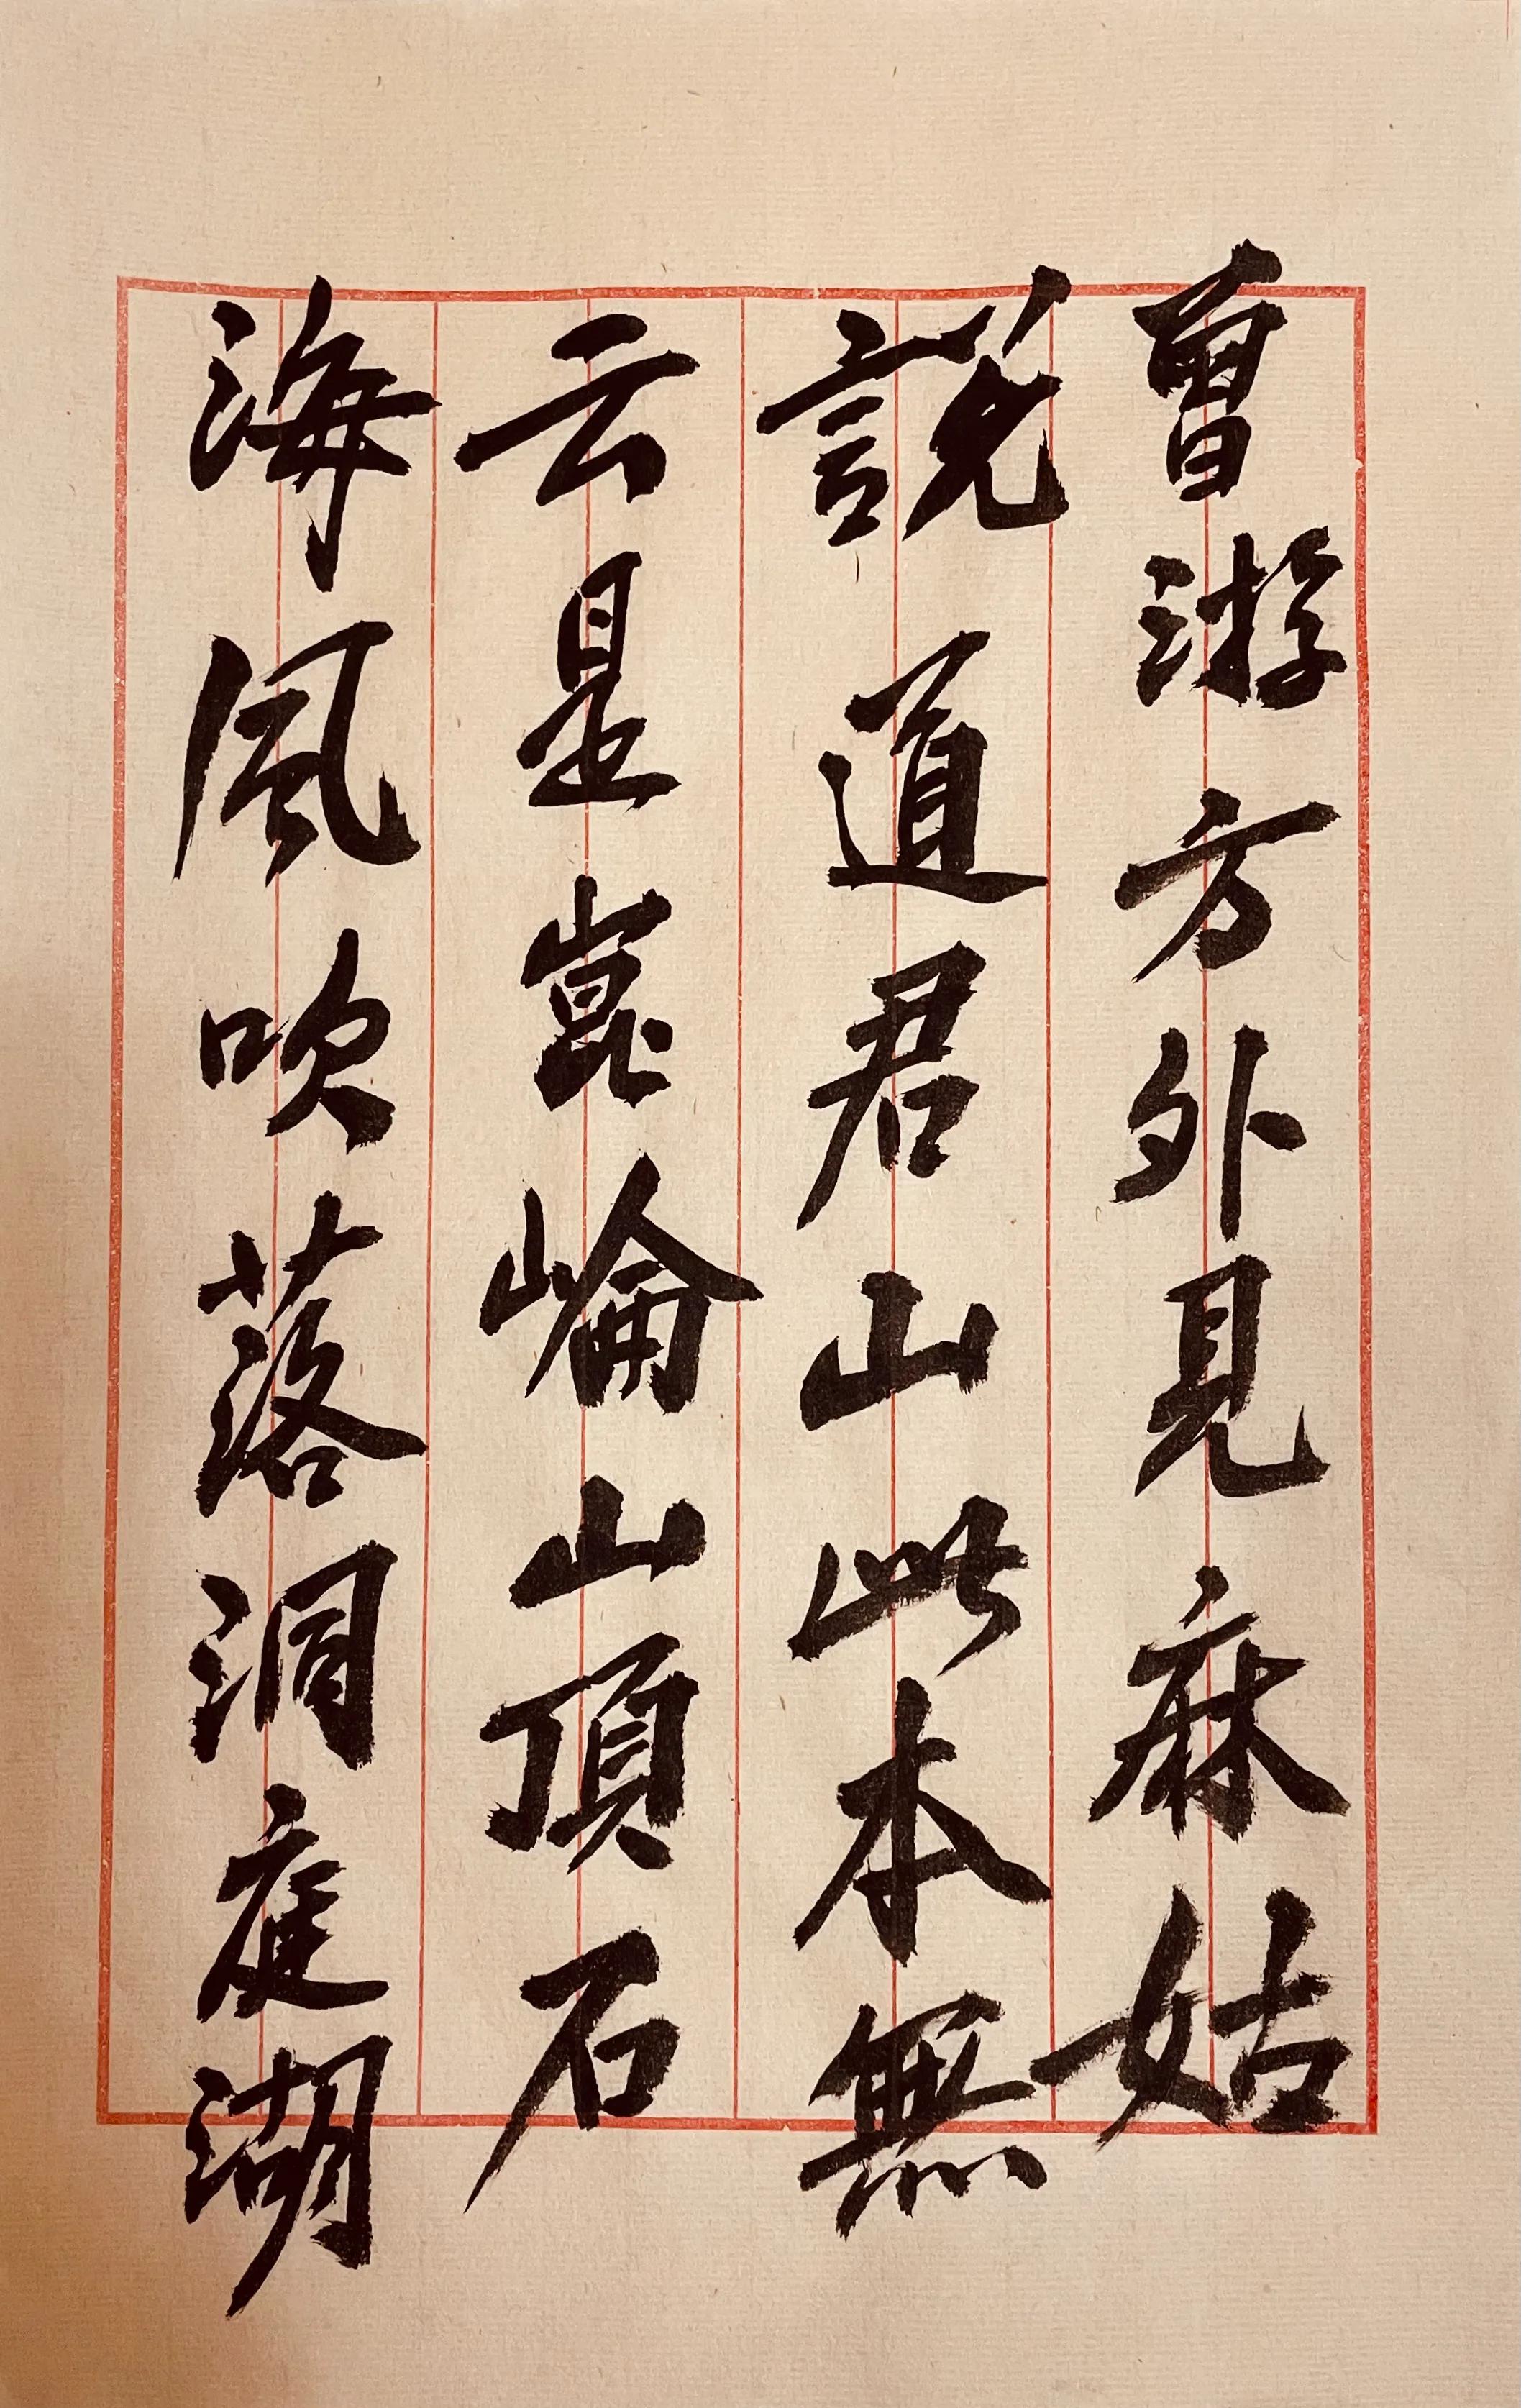 曾游方外見麻姑
説道君山此本無
云是崑崘山頂石
海風吹落洞庭湖